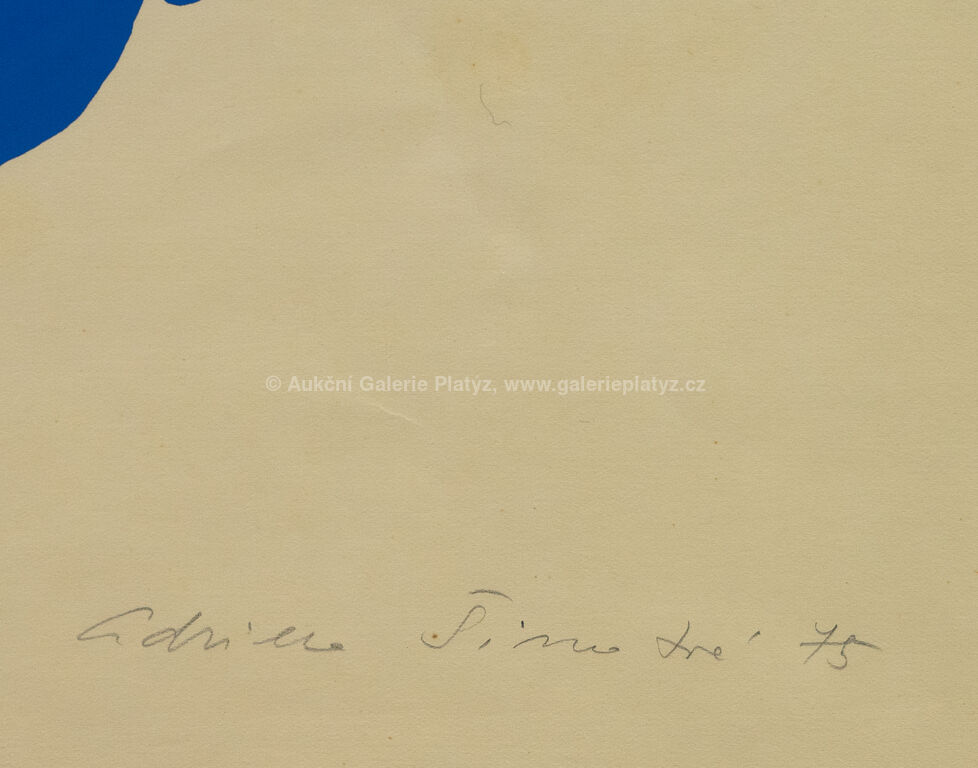 © Aukční Galerie Platýz, www.galerieplatyz.cz
Adriena Šimotová 75